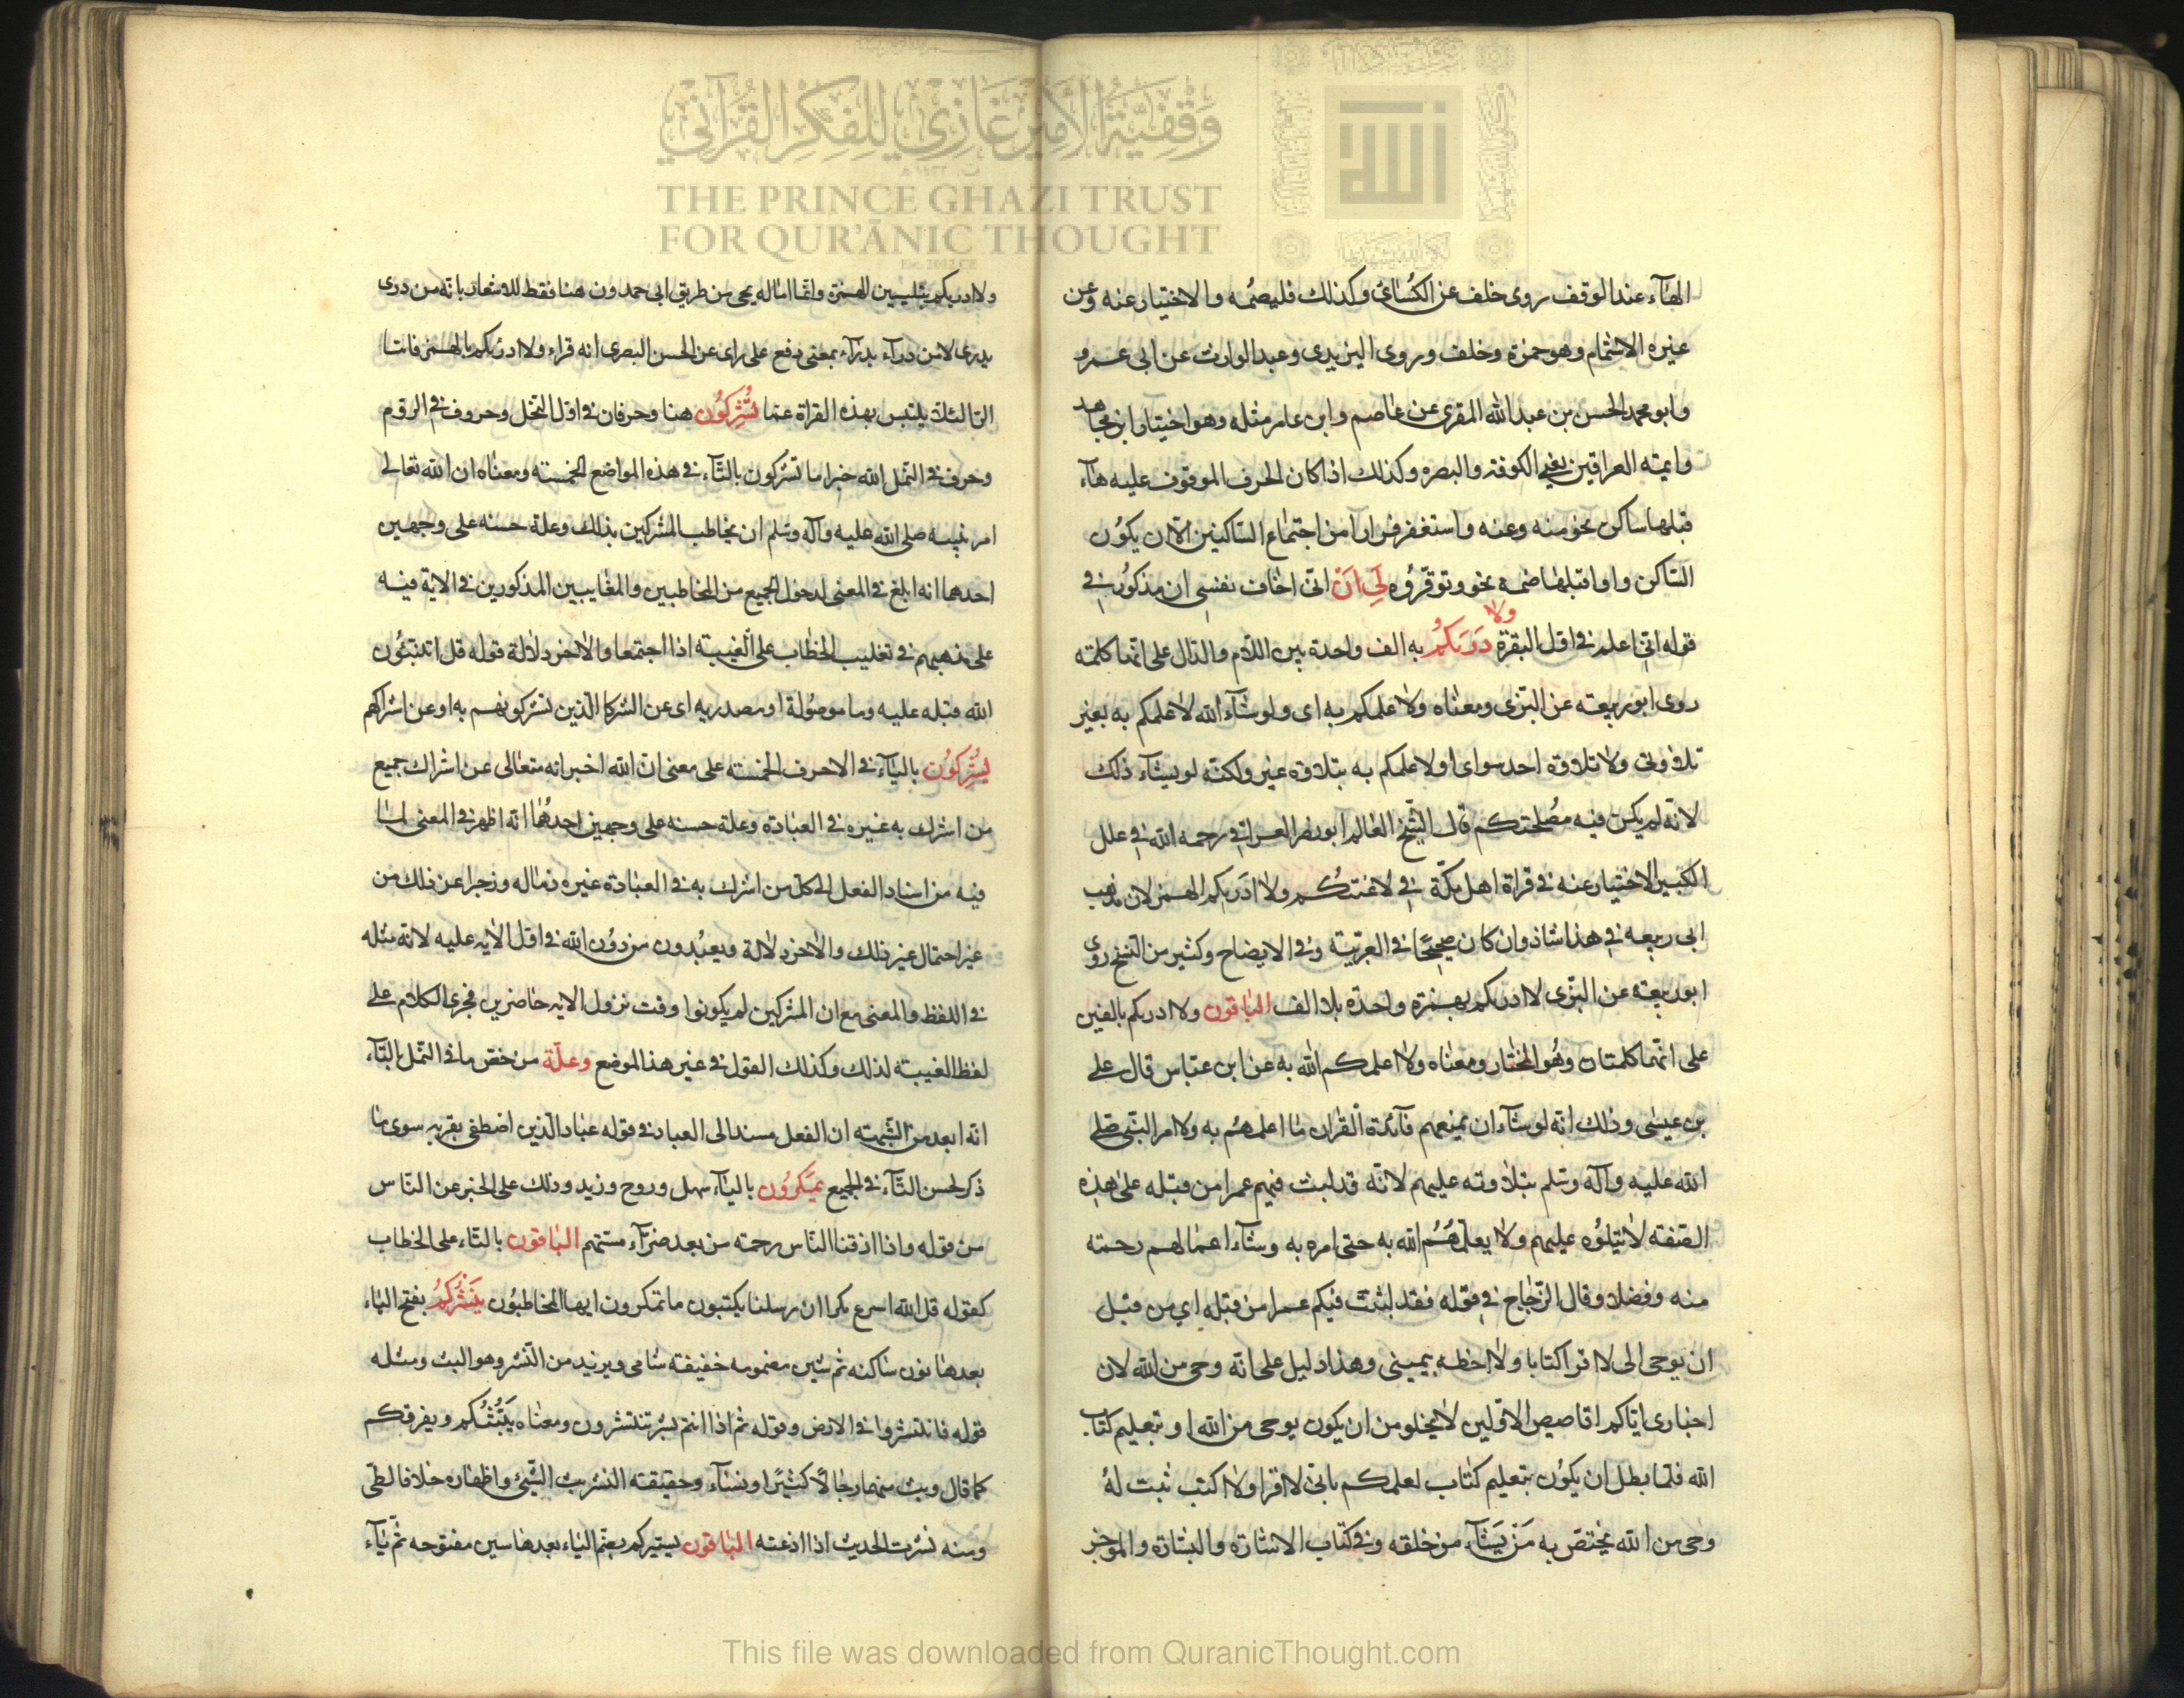 وقفية الأمير غازي للفكر القرآني
THE PRINCE GHAZI TRUST
FOR QUR'ĀNIC THOUGHT
الهآء عند الوقف روى خلف عن الكسائ وكذلك فليصمه والاختيار عنه وعن
غيره الاشمام وهو حمزة وخلف وروى اليزيدى وعبد الوارث عن ابى عمرو
وابو محمد الحسن بن عبد الله المقرى عن عاصم وابن عامر مثله وهو اختيار ابن مجاهد
وايمته العراقين يعنى الكوفة والبصره وكذلك اذا كان الحرف الموقوف عليه هآء
قبلها ساكن نحو منه وعنه واستغفر فرارا من اجتماع الساكنين الا ان يكون
الساكن واوا قبلها ضمة نحو وتوقروه لى ان انى اخاف نفسى ان مذكور فى
قوله انى اعلم فى اول البقرة ولا دريكم به الف واحدة بين اللام والدال على انها كلمته
روى ابو ربيعته عن البزى ومعناه ولا علمكم به اى ولو شآء الله لا علمكم به بغير
تلاوتى ولا تلاوة احد سواى اولا علمكم به بتلاوة غير ولكنه لو يشاء ذلك
لانه لم يكن فيه مصلحتكم قال الشيخ العالم ابو نصر العراقى رحمه الله فى علل
الكبير الاختيار عنه فى قراة اهل مكة فى لاعنتكم ولا ادريكم الهمز لان مذهب
ابى ربيعه فى هذا شاذ وان كان صحيحا فى العربية وفى الايضاح وكثير من النسخ روى
ابو ربيعته عن البزى لا ادريكم بهمزة واحدة بلا الف الباقون ولا ادريكم بالفين
على انهما كلمتان وهو المختار ومعناه ولا اعلمكم الله به عن ابن عباس قال على
بن عيسى وذلك انه لو شآء ان يمنعهم فآئدة القران ما اعلمهم به ولا امر النبى صلى
الله عليه وآله وسلم بتلاوته عليهم لانه قد لبث فيهم عمرا من قبله على هذه
الصفة لا يتلوه عليهم ولا يعلمهم الله به حتى امره به وشآء اعمالهم رحمته
منه وفضلا وقال الزجاج فى قوله فقد لبثت فيكم عمرا من قبله اى من قبل
ان يوحى الى لا اقرا كتابا ولا اخطه بيمينى وهذا دليل على انه وحى من الله لان
اخبارى اياكم اقاصيص الاولين لا يخلو من ان يكون بوحى من الله او بتعليم كتاب
الله فلما بطل ان يكون بتعليم كتاب لعلمكم بانى لا اقرا ولا اكتب ثبت له
وحى من الله يختص به من يشآء من خلقه وفى كتاب الاشارة والبشارة والموجز
ولا ادريكم بتليين الهمزة وانما اماله يحى من طريق ابى حمدون هنا فقط للاشعار بانه من درى
يدرى لا من درآء يدرآء بمعنى دفع على راى عن الحسن البصرى انه قراء ولا ادرئكم بالهمز فانتا
التا لئلا يلتبس بهذه القراة عما تشركون هنا وحرفان فى اول النحل وحروف فى الروم
وحرف فى النمل الله خير اما تشركون بالتآء فى هذه المواضع الخمسته ومعناه ان الله تعالى
امر نبيه صلى الله عليه وآله وسلم ان يخاطب المشركين بذلك وعلة حسنه على وجهين
احدهما انه ابلغ فى المعنى لدخول الجميع من المخاطبين والمغايبين المذكورين فى الاية فيه
على مذهبهم فى تغليب الخطاب على الغيبته اذا اجتمعا والاخر دلالة قوله قل اتنبئون
الله قبله عليه وما موصولة او مصدريه اى عن الشركا الذين تشركونهم به او عن اشراكهم
يشركون باليآء فى الاحرف الخمسته على معنى ان الله اخبر انه متعالى عن اشراك جميع
من اشرك به غيره فى العبادة وعلة حسنه على وجهين احدهما انه اظهر فى المعنى لما
فيه من اسناد الفعل الى كل من اشرك به فى العبادة غيره وزجرا عن ذلك من
غير احتمال غير ذلك والاخر دلالة ويعبدون من دون الله فى اول الايه عليه لانه مثله
فى اللفظ والمعنى مع ان المشركين لم يكونوا وقت نزول الايه حاضرين فجرى الكلام على
لفظ الغيبته لذلك وكذلك القول فى غير هذا الموضع وعلة من خص ما فى النمل بالتآء
انه ابعد من الشبهته ان الفعل مسند الى العباد فى قوله عباد الذين اصطفى بقربه سوى ما
ذكر لحسن التآء فى الجميع يمكرون باليآء سهل وروح وزيد وذلك على الخبر عن الناس
من قوله واذا اذقنا الناس رحمته من بعد ضرآء مستهم الباقون بالتاء على الخطاب
كقوله قل الله اسرع مكرا ان رسلنا يكتبون ما تمكرون ايها المخاطبون ينشركم بفتح الياء
بعدها نون ساكنه ثم شين مضمومه خفيفته شامى ويزيد من النشر وهو البث ومثله
قوله فانتشروا فى الارض وقوله ثم اذا انتم بشر تنتشرون ومعناه يبثكم ويفرقكم
كما قال وبث منهما رجالا كثيرا ونسآء وحقيقته النشر بث الشئ واظهاره خلاف الطى
ومنه نشرت الحديث اذا اذعته الباقون يسيركم بضم الياء بعدها سين مفتوحه ثم يآء
This file was downloaded from QuranicThought.com